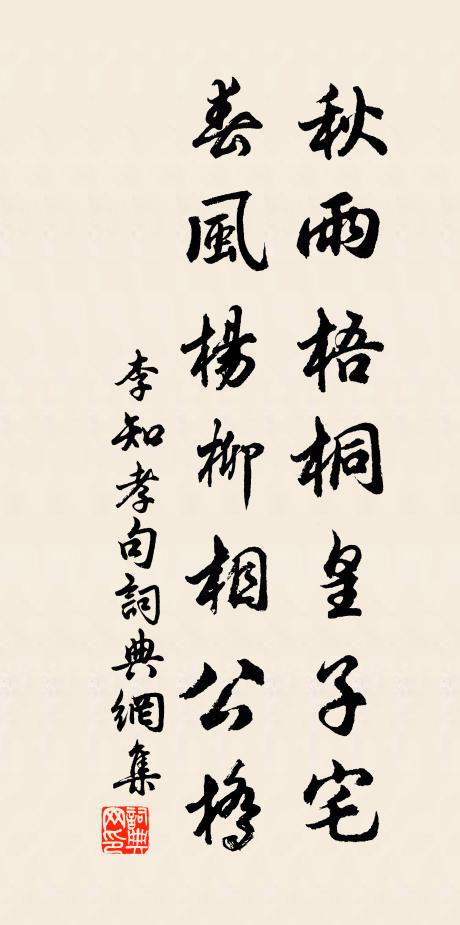 秋雨梧桐皇子宅
春風楊柳相公橋
李知孝句詞典網集
詞典網印